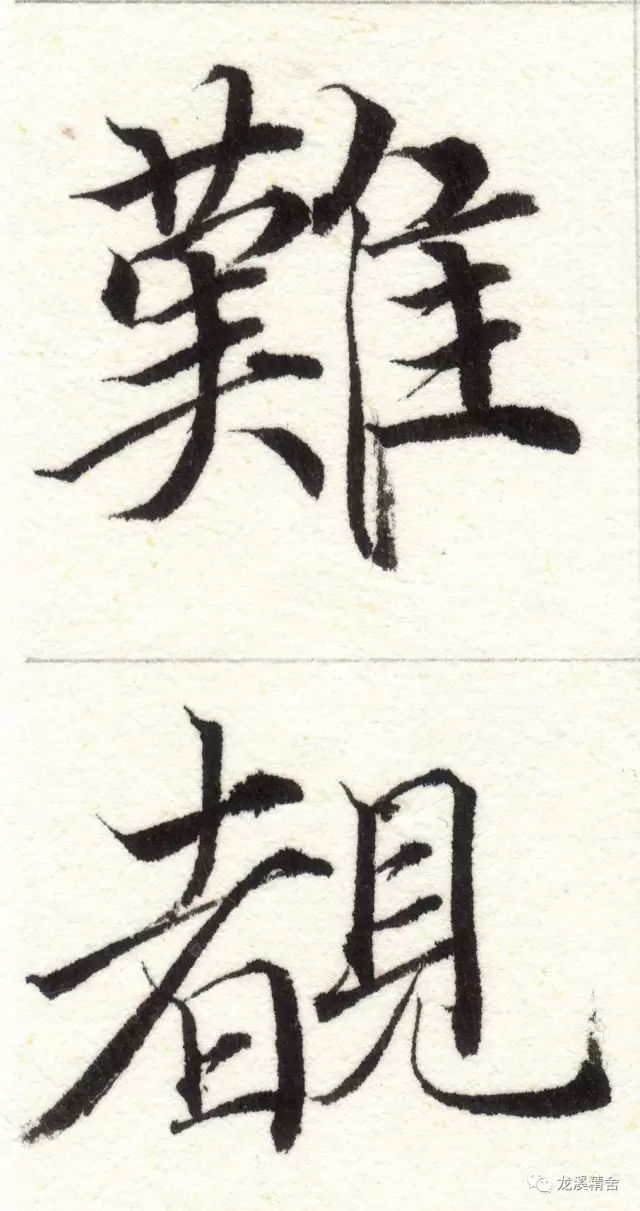 難
覩
龙溪精舍